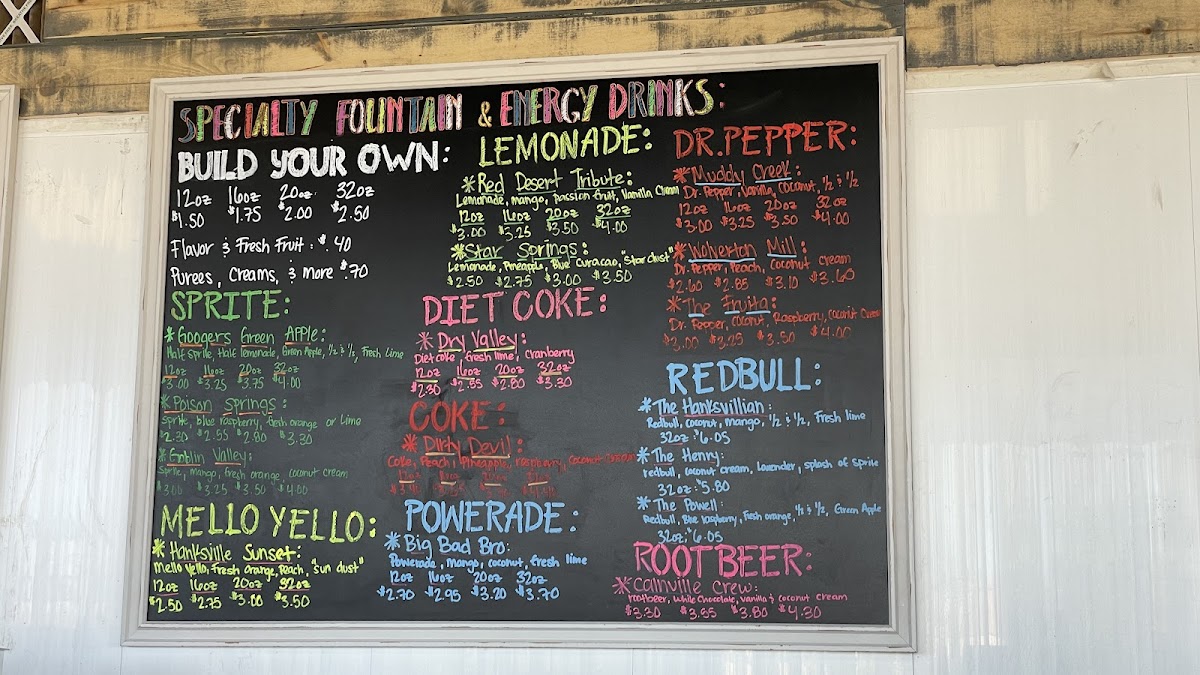 SPECIALTY FOUNTAIN & ENERGY DRINKS:
BUILD YOUR OWN:
12oz 16oz 20oz 32oz
$1.50 $1.75 $2.00 $2.50
Flavor & Fresh Fruit: $.40
Purees, Creams, & more $.70
SPRITE:
*Googers Green Apple:
Half sprite, Half lemonade, Green Apple, 1/2 & 1/2, Fresh lime
12oz 16oz 20oz 32oz
$3.00 $3.25 $3.75 $4.00
*Poison Springs:
Sprite, blue raspberry, fresh orange or lime
$2.30 $2.55 $2.80 $3.30
*Goblin Valley:
Sprite, mango, fresh orange, coconut cream
$3.00 $3.25 $3.50 $4.00
MELLO YELLO:
*Hanksville Sunset:
Mello Yello, Fresh orange, Peach, "sun dust"
12oz 16oz 20oz 32oz
$2.50 $2.75 $3.00 $3.50
LEMONADE:
*Red Desert Tribute:
Lemonade, mango, passion fruit, Vanilla
12oz 16oz 20oz 32oz
$3.00 $3.25 $3.50 $4.00
*Star Springs:
Lemonade, Pineapple, Blue Curacao, "Star dust"
$2.50 $2.75 $3.00 $3.50
DIET COKE:
*Dry Valley:
Diet coke, fresh lime, cranberry
12oz 16oz 20oz 32oz
$2.30 $2.55 $2.80 $3.30
COKE:
*Dirty Devil:
Coke, Peach, Pineapple, raspberry, coconut cream
POWERADE:
*Big Bad Bro:
Powerade, mango, coconut, fresh lime
12oz 16oz 20oz 32oz
$2.70 $2.95 $3.20 $3.70
DR. PEPPER:
*Muddy Creek:
Dr. Pepper, Vanilla, coconut, 1/2 & 1/2
12oz 16oz 20oz 32oz
$3.00 $3.25 $3.50 $4.00
*Wolverton Mill:
Dr. Pepper, Peach, coconut cream
$2.60 $2.85 $3.10 $3.60
*The Fruita:
Dr. Pepper, coconut, Raspberry, coconut
$3.00 $3.25 $3.50 $4.00
REDBULL:
*The Hanksvillian:
Redbull, coconut, mango, 1/2 & 1/2, Fresh lime
32oz: $6.05
*The Henry:
redbull, coconut cream, Lavender, splash of Sprite
32oz: $5.80
*The Powell:
Redbull, Blue raspberry, Fresh orange, 1/2 & 1/2, Green Apple
32oz: $6.05
ROOTBEER:
*Cainville Crew:
rootbeer, White Chocolate, vanilla & coconut cream
$3.30 $3.55 $3.80 $4.30